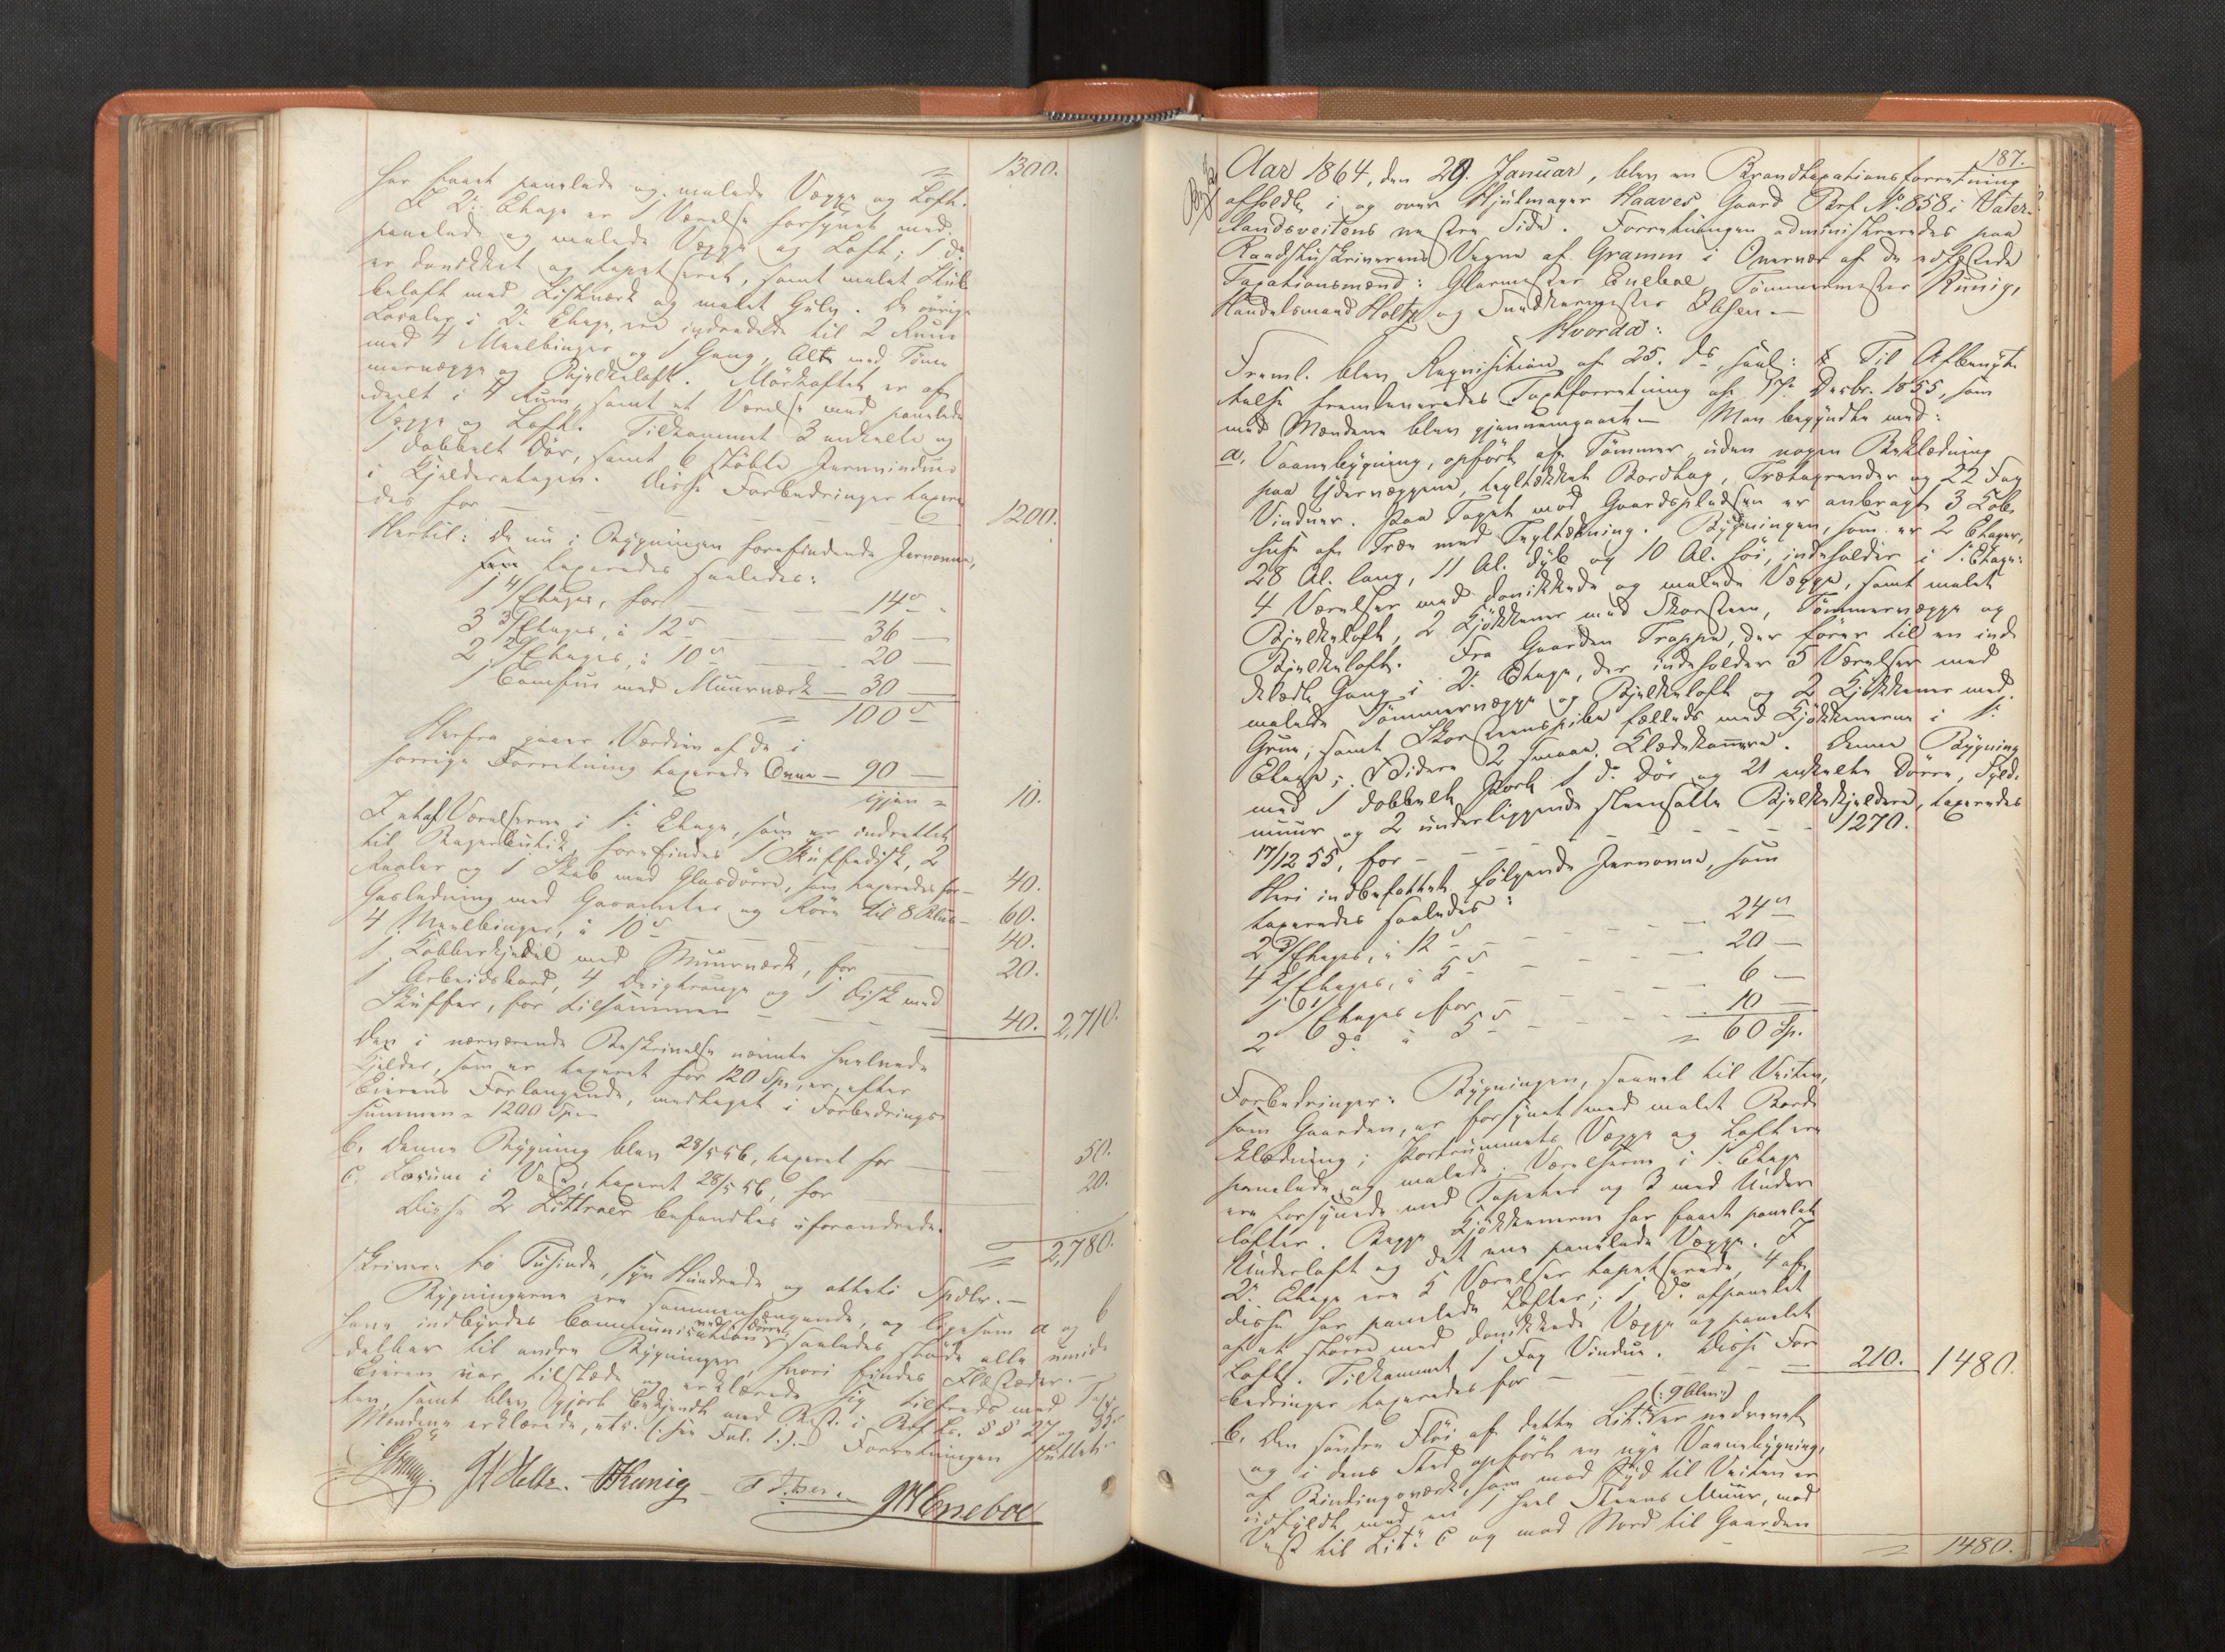 1300.
har faaet panelede og malede Vægge og Loft.
I 2. Etage er 1 Værelse forsynet med
panelede og malede Vægge og Loft; 1 do
er donikket og tapetseret, samt malet
beloft med Listværk og malet Gulv. De øvrige
Localer i 2. Etage, ere indredede til 2 Rum
med 4 Meelbinger og 1 Gang, Alt med Tøm-
mervægge og Bjelkeloft. Mörkloftet er af-
deelt i 4 Rum, samt et Værelse med panelede
Vægge og Loft. Tilkommet 3 enkelte og
1 dobbelt Dör, samt 6 støbte Jernvinduer
i Kjelderetagen. Disse Forbedringer taxere-
des for — 1200.
Hertil: De nu i Bygningen forefindende Jernovne,
som taxeredes saaledes:
1 4/Etages, for — 14
3 3/Etages, à 12 — 36 —
2 2/Etages, à 10 — 20 —
1 Comfur med Muurværk — 30 —
= 100
Herfra gaaer Værdien af de i
forrige Forretning taxerede Ovne — 90 —
igjen = 10.
I et af Værelserne i 1. Etage, som er indrettet
til Bagerbutik, forefindes 1 Skuffedisk, 2
Reoler og 1 Skab med Glasdörre, som taxeredes for — 40.
Gasledning med Gasometer og Rör til 8 Blus — 60.
4 Meelbinger, à 10 — 40.
1 Kobberkjedel med Muurværk, for — 20.
1 Arbeidsbord, 4 Deigtrouge og 1 Disk med
Skuffer, for tilsammen — 40. 2,710.
Den i nærværende Beskrivelse nævnte hvelvede
Kjelder, som er taxeret for 120 Sp., er, efter
Eierens Forlangende, medtaget i Forbedrings-
summen = 1200 Sp.
b. Denne Bygning blev 28/5 56, taxeret for — 50.
c. Locum i Vest, taxeret 28/5 56, for — 20.
Disse 2 Littraer befandtes uforandrede.
= 2,780.
skriver to Tusinde, syv Hundrede og otteti Spdlr. —
Bygningerne ere sammenhængende, og ligesom a og b
have indbyrdes Communication ved Dörre, saaledes støde alle umid-
delbar til andre Bygninger, hvori findes Ildsteder. —
Eieren var tilstede og erklærede sig tilfreds med Tax-
ten, samt blev gjort bekjendt med Best. i Brf. Lr. §§ 27 og 33.
Mændene erklærede, etc. (: see Fol. 1.:). — Forretningen sluttet.
Gramm. JH Holtz. Kunig — Ibsen. JM Eneboe

187.
Aar 1864, den 29. Januar, blev en Brandtaxationsforretning
afholdt i og over Hjulmager Haaves Gaard Brf. No. 858 i Vater-
landsveitens vestre Side. Forretningen administreredes paa
Raadstuskriverens Vegne af Gramm i Overvær af de edfæstede
Taxationsmænd: Glarmester Eneboe, Tømmermester Kunig,
Handelsmand Holtz og Snedkermester Ibsen. —
Hvorda:
Freml. blev Requisition af 25. ds, saal: Til Afbenyt-
telse fremleveredes Taxtforretning af 17. Decbr. 1855, som
med Mændene blev gjennemgaaet. — Man begyndte med:
a. Vaanebygning, opført af Tømmer, uden nogen Beklædning
paa Ydervæggene, tegltækket Bordtag, Trætagrender og 22 Fag
Vinduer. Paa Taget mod Gaardspladsen er anbragt 3 Lob-
huse af Træ med Tegltækning. Bygningen, som er 2 Etager,
28 Al. lang, 11 Al. dyb og 10 Al. höi, indeholder i 1. Etage:
4 Værelser med donikkede og malede Vægge, samt malet
Bjelkeloft, 2 Kjökkener med Skorsteen, Tømmervægge og
Bjelkeloft. Fra Gaarden Trappe, der fører til en ind-
klædt Gang i 2. Etage, der indeholder 5 Værelser med
malede Tømmervægge og Bjelkeloft og 2 Kjökkener med
Gruer, samt Skorsteenspiber fælleds med Kjökkenerne i 1.
Etage; Videre 2 smaae Klædekamre. Denne Bygning
med 1 dobbelt Port, 1 do Dör og 21 enkelte Dörre, Fyld-
muur og 2 underliggende steensatte Bjelkekjeldere, taxeredes
17/12 55, for — 1270.
Heri indbefattet følgende Jernovne, som
taxeredes saaledes:
2 3/Etages, à 12 — 24
4 2/Etages, à 5 — 20 —
1 1/Etages for — 6 —
2 do à 5 — 10 —
= 60 Sp.
Forbedringer: Bygningen, saavel til Veiten,
som Gaarden, er forsynet med malet Bord-
klædning; Portrummets Vægge og Loft ere
panelede og malede. Værelserne i 1. Etage
ere forsynede med Tapeter og 3 med Under-
lofter. Begge Kjökkenerne har faaet panelet
Underloft og det ene panelede Vægge. I
2. Etage ere 5 Værelser tapetserede, 4 af
disse har panelede Lofter; 1 do afpanelet
af et större med donikkede Vægge og panelet
Loft. Tilkommet 1 Fag Vindue. Disse For-
bedringer taxeredes for — 210. 1480.
b. Den søndre Flöi af dette Lit. er (: 9 Alen :) nedrevet
og i dens Sted opført en nye Vaanebygning
af Bindingsværk, som mod Syd til Veiten er
udfyldt med en 1 heel Steens Muur, mod
Vest til Lit. C og mod Nord til Gaarden
= 1480.